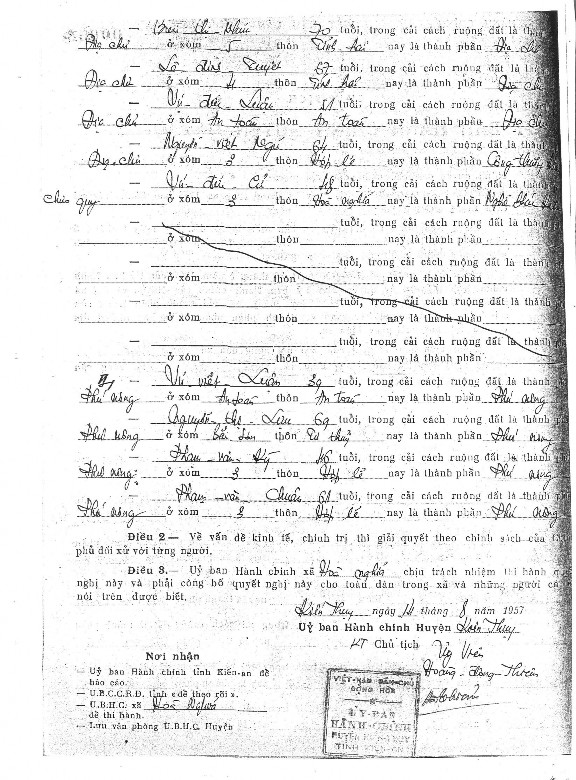 — Thị 70 tuổi, trong cải cách ruộng đất là thành
Địa chủ ở xóm 5 thôn Tĩnh hải nay là thành phần Địa chủ
— Lê đình 67 tuổi, trong cải cách ruộng đất là thành
Địa chủ ở xóm 4 thôn Tĩnh hải nay là thành phần Địa chủ
— Vũ đức Luân 51 tuổi, trong cải cách ruộng đất là thành
Địa chủ ở xóm An toàn thôn An toàn nay là thành phần Địa chủ
— Nguyễn viết Ngữ 64 tuổi, trong cải cách ruộng đất là thành
Địa chủ ở xóm 3 thôn Hợp lễ nay là thành phần Công thương
— Vũ đức 48 tuổi, trong cải cách ruộng đất là thành
quy ở xóm 3 thôn Hoà nghĩa nay là thành phần Nghề
— tuổi, trong cải cách ruộng đất là thành
ở xóm thôn nay là thành phần
— tuổi, trong cải cách ruộng đất là thành
ở xóm thôn nay là thành phần
— tuổi, trong cải cách ruộng đất là thành
ở xóm thôn nay là thành phần
— tuổi, trong cải cách ruộng đất là thành
ở xóm thôn nay là thành phần
— Vũ viết Luân 39 tuổi, trong cải cách ruộng đất là thành
Phú nông ở xóm An toàn thôn An toàn nay là thành phần Phú nông
— Nguyễn thị Lưu 69 tuổi, trong cải cách ruộng đất là thành
Phú nông ở xóm thôn Tư thuỷ nay là thành phần Phú nông
— Phạm văn 46 tuổi, trong cải cách ruộng đất là thành
Phú nông ở xóm 3 thôn Hợp lễ nay là thành phần Phú nông
— Phạm văn Chuân 61 tuổi, trong cải cách ruộng đất là thành
Phú nông ở xóm 3 thôn Hợp lễ nay là thành phần Phú nông
Điều 2 — Về vấn đề kinh tế, chính trị thì giải quyết theo chính sách của
phủ đối xử với từng người.
Điều 3. — Uỷ ban Hành chính xã Hoà nghĩa chịu trách nhiệm thi hành
nghị này và phải công bố quyết nghị này cho toàn dân trong xã và những người
nói trên được biết.
Kiến Thuỵ ngày 14 tháng 8 năm 1957
Uỷ ban Hành chính Huyện Kiến Thuỵ
KT Chủ tịch
Uỷ Viên
Nơi nhận
— Uỷ ban Hành chính tỉnh Kiến-an để
báo cáo.
— U.B.C.C.R.Đ. tỉnh để theo rõi x.
— U.B.H.C. xã Hoà Nghĩa
để thi hành.
— Lưu văn phòng U.B.H.C. Huyện
VIỆT-NAM DÂN-CHỦ
CỘNG HÒA
ỦY-BAN
HÀNH-CHÍNH